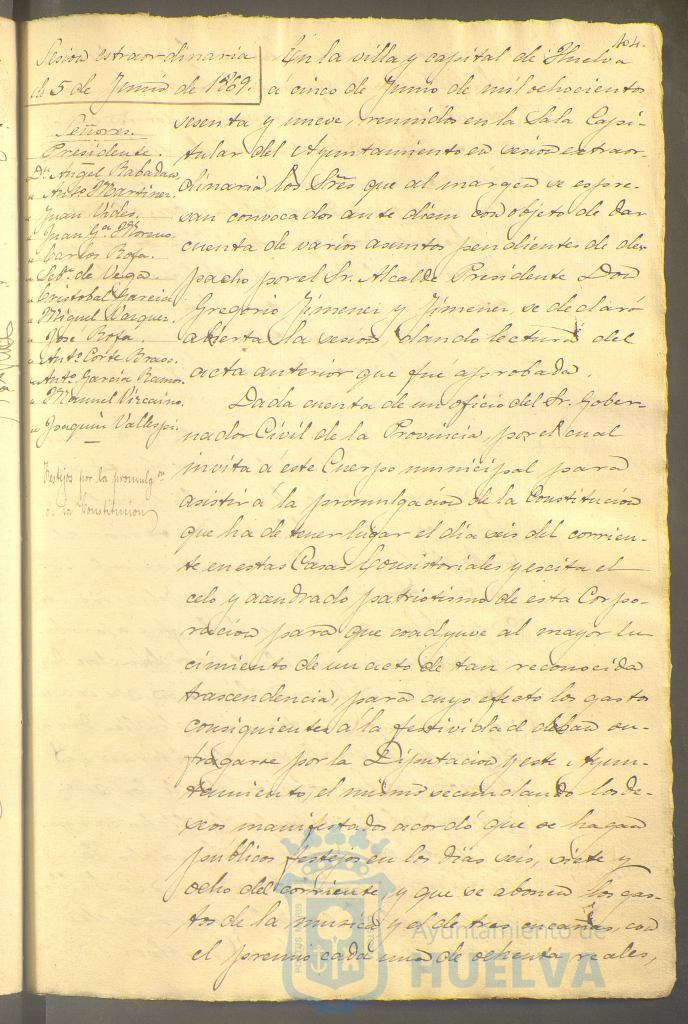 104.
Sesion extraordinaria
de 5 de Junio de 1869.
Señores.
Presidente.
Dn. Angel Rabadan,
" Anto. Martinez.
" Juan Vides.
" Juan Ga. Moreno.
" Carlos Rofa.
" Sebn. de Vega.
" Cristobal Garcia
" Miguel Vazquez.
" Jose Rofa.
" Anto. Corte Bravo.
" Anto. Garcia Ramos.
" Manuel Vizcaino.
" Joaquin Vallespi.
Festejos por la promulgon.
de la Constitucion
En la villa y capital de Huelva
á cinco de Junio de mil ochocientos
sesenta y nueve, reunidos en la Sala Capi-
tular del Ayuntamiento en sesion extraor-
dinaria los Sres que al margen se espre-
san convocados ante diem con objeto de dar
cuenta de varios asuntos pendientes de des-
pacho por el Sr. Alcalde Presidente Don
Gregorio Jimenez y Jimenez, se declaró
abierta la sesion, dando lectura del
acta anterior que fué aprobada.
Dada cuenta de un oficio del Sr. Gober-
nador Civil de la Provincia, por el cual
invita á este Cuerpo municipal para
asistir á la promulgacion de la Constitucion
que ha de tener lugar el dia seis del corrien-
te en estas Casas Consistoriales y escita el
celo y acendrado patriotismo de esta Corpo-
racion para que coadyuve al mayor lu-
cimiento de un acto de tan reconocida
trascendencia, para cuyo efecto los gastos
consiguientes á la festividad deban su-
fragarse por la Diputacion y este Ayun-
tamiento, el mismo secundando los de-
seos manifestados acordó que se hagan
publicos festejos en los dias seis, siete y
ocho del corriente, y que se abonen los gas-
tos de la musica y el de tres cucañas, con
el premio cada una de ochenta reales,
Ayuntamiento de
HUELVA